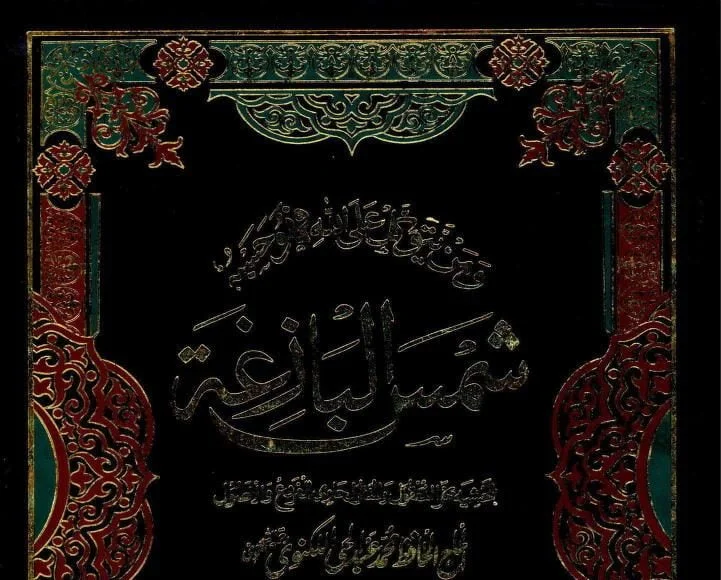 وَمَنْ يَتَوَكَّلْ عَلَى اللّٰهِ فَهُوَ حَسْبُهُ
شمس البازغة
المنقول والمعقول حاوي الفروع والأصول
الحافظ محمد عبد الحي اللكنوي